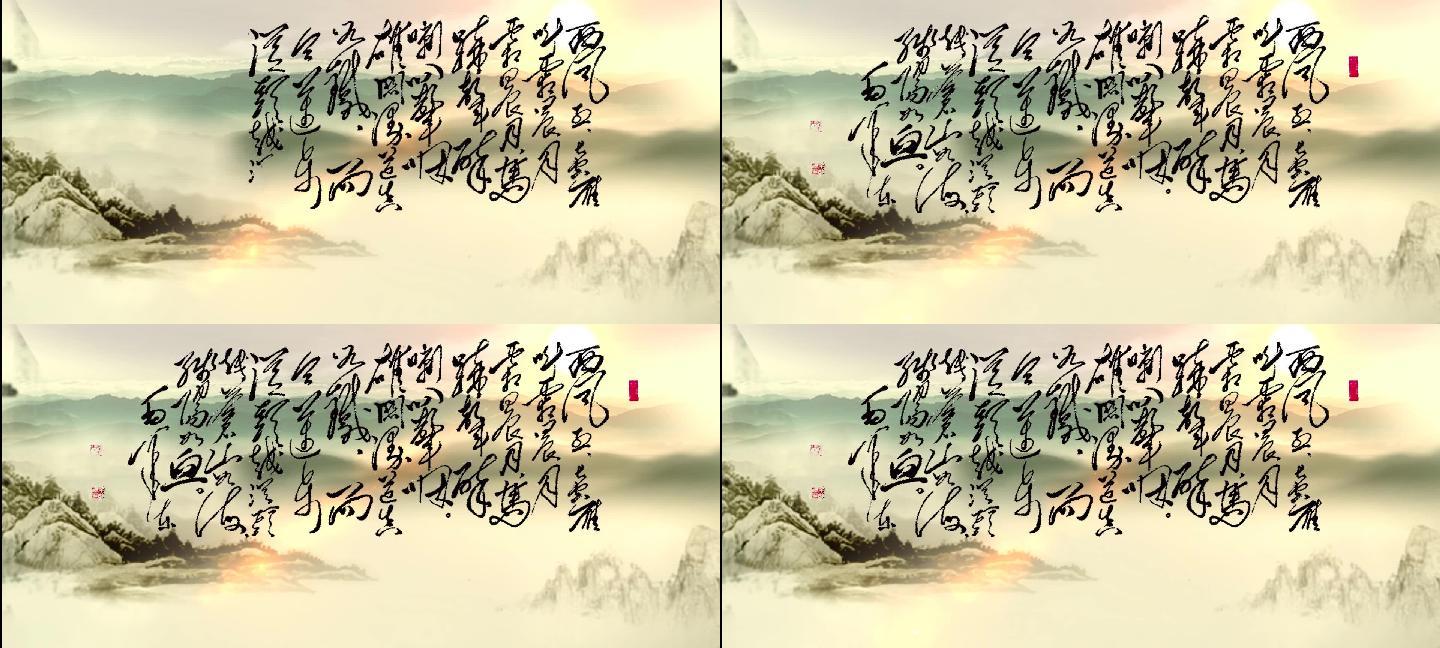 西风烈长空雁
叫霜晨月
霜晨月马
蹄声碎
喇叭声咽
雄关漫道真
如铁而
今迈步
从头越从
西风烈长空雁
叫霜晨月
霜晨月马
蹄声碎
喇叭声咽
雄关漫道真
如铁而
今迈步
从头越从头
越苍山如海
残阳如血
毛泽东
西风烈长空雁
叫霜晨月
霜晨月马
蹄声碎
喇叭声咽
雄关漫道真
如铁而
今迈步
从头越从头
越苍山如海
残阳如血
毛泽东
西风烈长空雁
叫霜晨月
霜晨月马
蹄声碎
喇叭声咽
雄关漫道真
如铁而
今迈步
从头越从头
越苍山如海
残阳如血
毛泽东